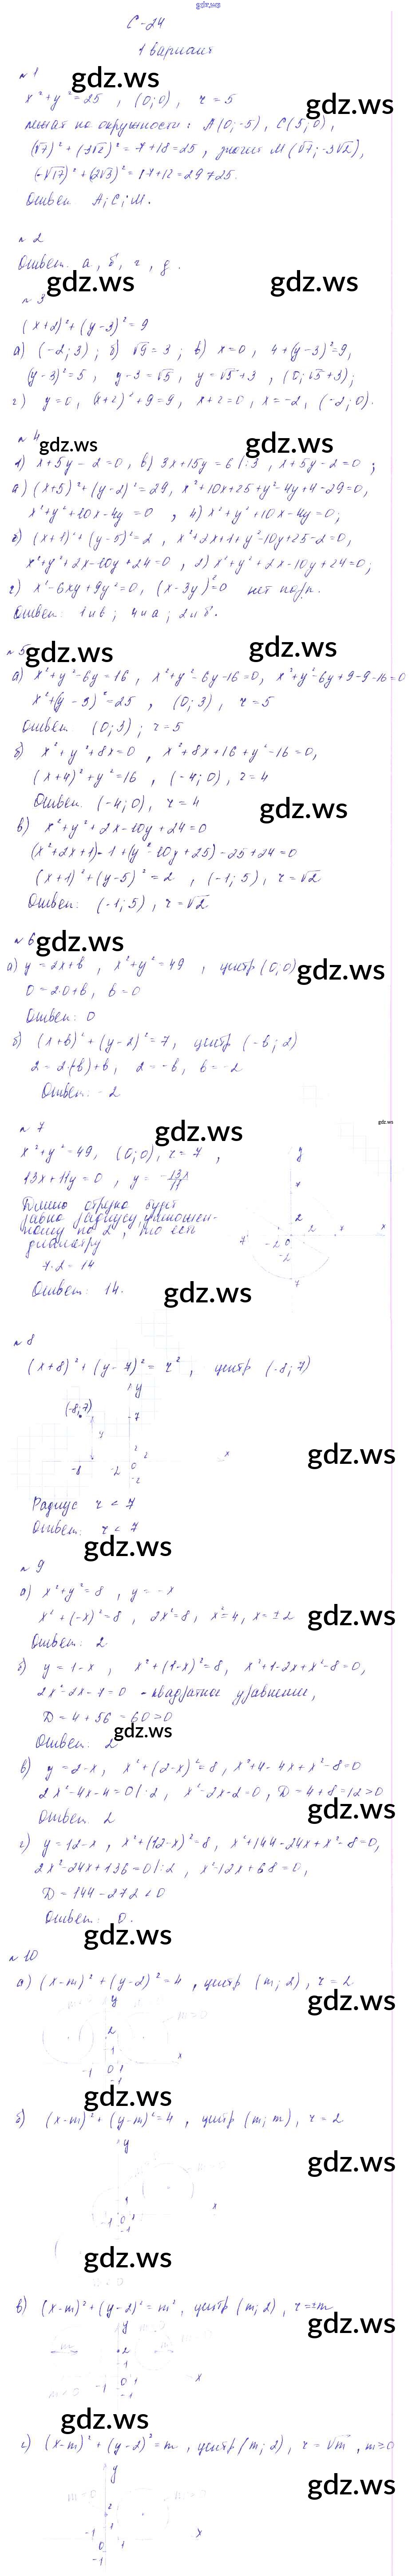 gdz.ws
С-24
1 вариант
№ 1
x² + y² = 25 , (0; 0) , r = 5
лежат на окружности: A(0; -5), C(5; 0),
(√7)² + (-3√2)² = 7 + 18 = 25, значит M(√7; -3√2),
(-√17)² + (2√3)² = 17 + 12 = 29 ≠ 25.
Ответ A; C; M.
№ 2
Ответ. а, б, г, д.
№ 3
(x+2)² + (y-3)² = 9
а) (-2; 3); б) √9 = 3; в) x = 0, 4 + (y-3)² = 9,
(y-3)² = 5, y-3 = √5, y = √5 + 3, (0; √5 + 3);
г) y = 0, (x+2)² + 9 = 9, x+2 = 0, x = -2, (-2; 0).
№ 4
1) x + 5y - 2 = 0, в) 3x + 15y = 6 |:3, x + 5y - 2 = 0;
а) (x+5)² + (y-2)² = 29, x² + 10x + 25 + y² - 4y + 4 - 29 = 0,
x² + y² + 10x - 4y = 0 , 4) x² + y² + 10x - 4y = 0;
б) (x+1)² + (y-5)² = 2, x² + 2x + 1 + y² - 10y + 25 - 2 = 0,
x² + y² + 2x - 10y + 24 = 0, 2) x² + y² + 2x - 10y + 24 = 0;
г) x² - 6xy + 9y² = 0, (x - 3y)² = 0 нет
Ответ: 1 и в; 4 и а; 2 и б.
№ 5
а) x² + y² - 6y = 16, x² + y² - 6y - 16 = 0, x² + y² - 6y + 9 - 9 - 16 = 0
x² + (y-3)² = 25, (0; 3), r = 5
Ответ (0; 3); r = 5
б) x² + y² + 8x = 0, x² + 8x + 16 + y² - 16 = 0,
(x+4)² + y² = 16, (-4; 0), r = 4
Ответ (-4; 0), r = 4
в) x² + y² + 2x - 10y + 24 = 0
(x² + 2x + 1) - 1 + (y² - 10y + 25) - 25 + 24 = 0
(x+1)² + (y-5)² = 2 , (-1; 5), r = √2
Ответ: (-1; 5), r = √2
№ 6
а) y = 2x + b, x² + y² = 49 , центр (0; 0)
0 = 2·0 + b, b = 0
Ответ: 0
б) (x+b)² + (y-2)² = 7, центр (-b; 2)
2 = 2·(-b) + b, 2 = -b, b = -2
Ответ: -2
№ 7
x² + y² = 49, (0; 0), r = 7 ,
13x + 11y = 0 , y = -13x/11
Длина отрезка будет
равна радиусу, умножен-
ному на 2, то есть
диаметру
7·2 = 14
Ответ: 14.
y
x
2
2
-2
0
-2
7
7
№ 8
(x+8)² + (y-7)² = r², центр (-8; 7)
(-8; 7)
y
7
2
2
x
-8
-2
0
-2
Радиус r < 7
Ответ: r < 7
№ 9
а) x² + y² = 8 , y = -x
x² + (-x)² = 8, 2x² = 8, x² = 4, x = ±2
Ответ: 2
б) y = 1 - x , x² + (1-x)² = 8, x² + 1 - 2x + x² - 8 = 0,
2x² - 2x - 7 = 0 - квадратное уравнение,
D = 4 + 56 = 60 > 0
Ответ: 2
в) y = 2 - x, x² + (2-x)² = 8, x² + 4 - 4x + x² - 8 = 0
2x² - 4x - 4 = 0 |:2, x² - 2x - 2 = 0, D = 4 + 8 = 12 > 0
Ответ: 2
г) y = 12 - x, x² + (12-x)² = 8, x² + 144 - 24x + x² - 8 = 0,
2x² - 24x + 136 = 0 |:2, x² - 12x + 68 = 0,
D = 144 - 272 < 0
Ответ: 0.
№ 10
а) (x-m)² + (y-2)² = 4 , центр (m; 2), r = 2
y
2
1
x
-1 0 1
-1
б) (x-m)² + (y-m)² = 4 , центр (m; m), r = 2
y
1
x
-1 0 1
-1
в) (x-m)² + (y-2)² = m², центр (m; 2), r = ±m
y
2
1
x
-1 0 1
-1
г) (x-m)² + (y-2)² = m, центр (m; 2), r = √m, m ≥ 0
y
2
1
-1
x
0 1
-1